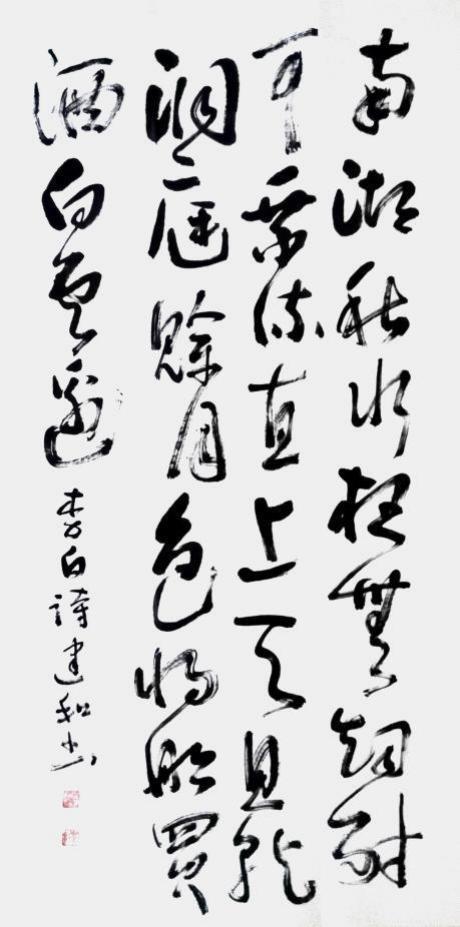 南湖秋水夜無烟耐
可乘流直上天且就
洞庭賒月色將船買
酒白雲邊 李白詩建和书